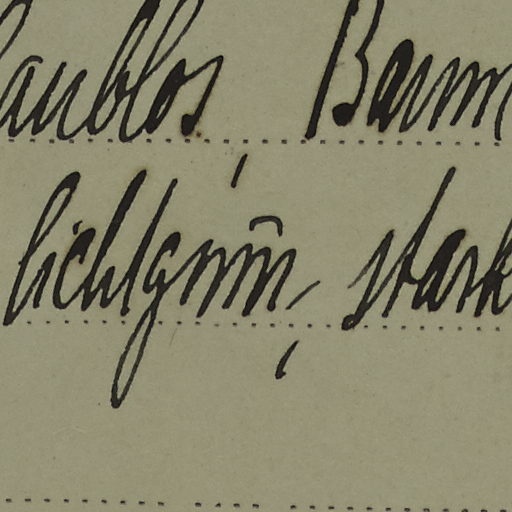 laublos, Baum
lichtgrün, stark